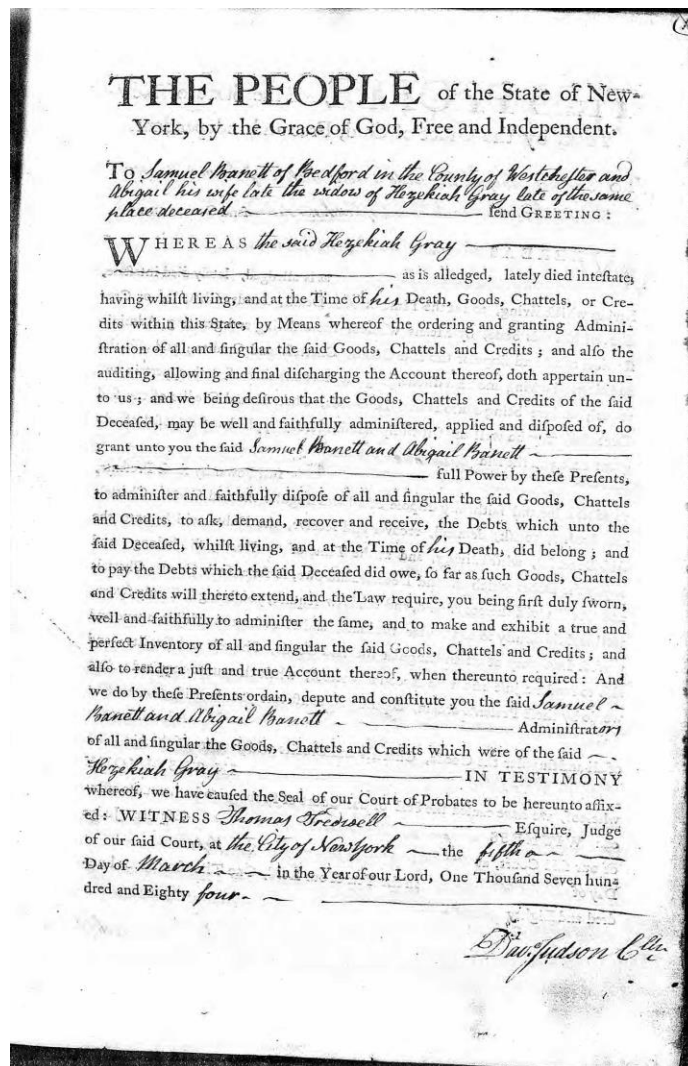 THE PEOPLE of the State of New-
York, by the Grace of God, Free and Independent.
To Samuel Banett of Bedford in the County of Westchester and
Abigail his wife late the widow of Hezekiah Gray late of the same
place deceased send GREETING:
WHEREAS the said Hezekiah Gray
as is alledged, lately died intestate,
having whilst living, and at the Time of his Death, Goods, Chattels, or Cre-
dits within this State, by Means whereof the ordering and granting Admini-
stration of all and singular the said Goods, Chattels and Credits; and also the
auditing, allowing and final discharging the Account thereof, doth appertain un-
to us; and we being desirous that the Goods, Chattels and Credits of the said
Deceased, may be well and faithfully administered, applied and disposed of, do
grant unto you the said Samuel Banett and Abigail Banett
full Power by these Presents,
to administer and faithfully dispose of all and singular the said Goods, Chattels
and Credits, to ask, demand, recover and receive, the Debts which unto the
said Deceased, whilst living, and at the Time of his Death, did belong; and
to pay the Debts which the said Deceased did owe, so far as such Goods, Chattels
and Credits will thereto extend, and the Law require, you being first duly sworn,
well and faithfully to administer the same, and to make and exhibit a true and
perfect Inventory of all and singular the said Goods, Chattels and Credits; and
also to render a just and true Account thereof, when thereunto required: And
we do by these Presents ordain, depute and constitute you the said Samuel
Banett and Abigail Banett Administrators
of all and singular the Goods, Chattels and Credits which were of the said
Hezekiah Gray IN TESTIMONY
whereof, we have caused the Seal of our Court of Probates to be hereunto affix-
ed: WITNESS Thomas Tredwell Esquire, Judge
of our said Court, at the City of New York the fifth
Day of March in the Year of our Lord, One Thousand Seven hun-
dred and Eighty four.
Davd. Judson Clk